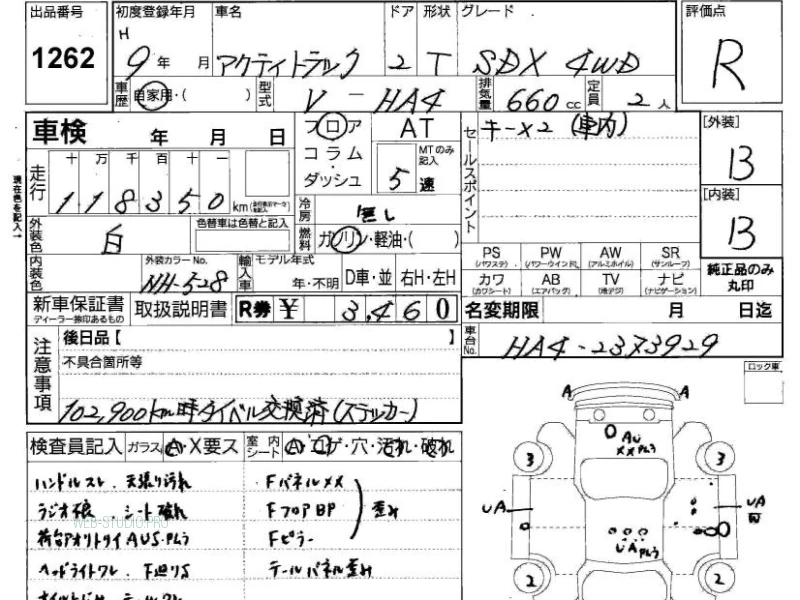 出品番号 初度登録年月 車名 ドア 形状 グレード 評価点
1262 H 9年 月 アクティトラック 2 T SDX 4WD R
車歴 自家用・( ) 型式 V-HA4 排気量 660cc 定員 2人
車検 年 月 日 フロア AT セールスポイント キーX2 (車内) [外装] B
走行 十 万 千 百 十 一 コラム・ダッシュ MTのみ記入 5速
現在色を記入→ 118350km 冷房 無し [内装] B
外装色 白 色替車は色替と記入 燃料 ガソリン・軽油・( )
PS PW AW SR
(パワステ) (パワーウインド) (アルミホイル) (サンルーフ)
内装色 外装カラーNo. NH-528 輸入車 モデル年式 年・不明 D車・並 右H・左H
カワ AB TV ナビ 純正品のみ丸印
(カワシート) (エアバッグ) (地デジ) (ナビゲーション)
新車保証書 取扱説明書 R券 ¥ 3,460 名変期限 月 日迄
ディーラー捺印あるもの
注意事項 後日品【 】 車台No. HA4-2373929
不具合箇所等 ロック車
102,900km時タイベル交換済(ステッカー)
検査員記入 ガラス A・X要ス 室内シート A・コゲ・穴・汚れ・破れ
ハンドルスレ 天張り汚れ FパネルXX
ラジオ破 シート破れ FフロアBP 歪み
WEB-STUDIO.PRO
荷台アオリトリイAUS.PMラ Fピラー
ヘッドライトワレ F廻りS テールパネル歪み
A A
AU
XXPMラ
3 3
UA UA
UAPMラ
2 2